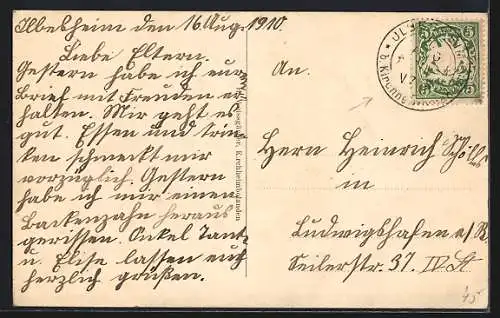 Ilbesheim den 16 Aug. 1910.
Liebe Eltern.
Gestern habe ich eur
Brief mit Freuden er
halten. Mir geht es
gut. Essen und trin
ken schmeckt mir
vorzüglich. Gestern
habe ich mir einen
Backenzahn heraus
gerissen. Onkel Tant
u. Elise lassen euch
herzlich grüßen.
Kirchheimbolanden
An.
Herrn Heinrich
in
Ludwigshafen a/R.
Seilerstr. 37. IV. St
5 5
45